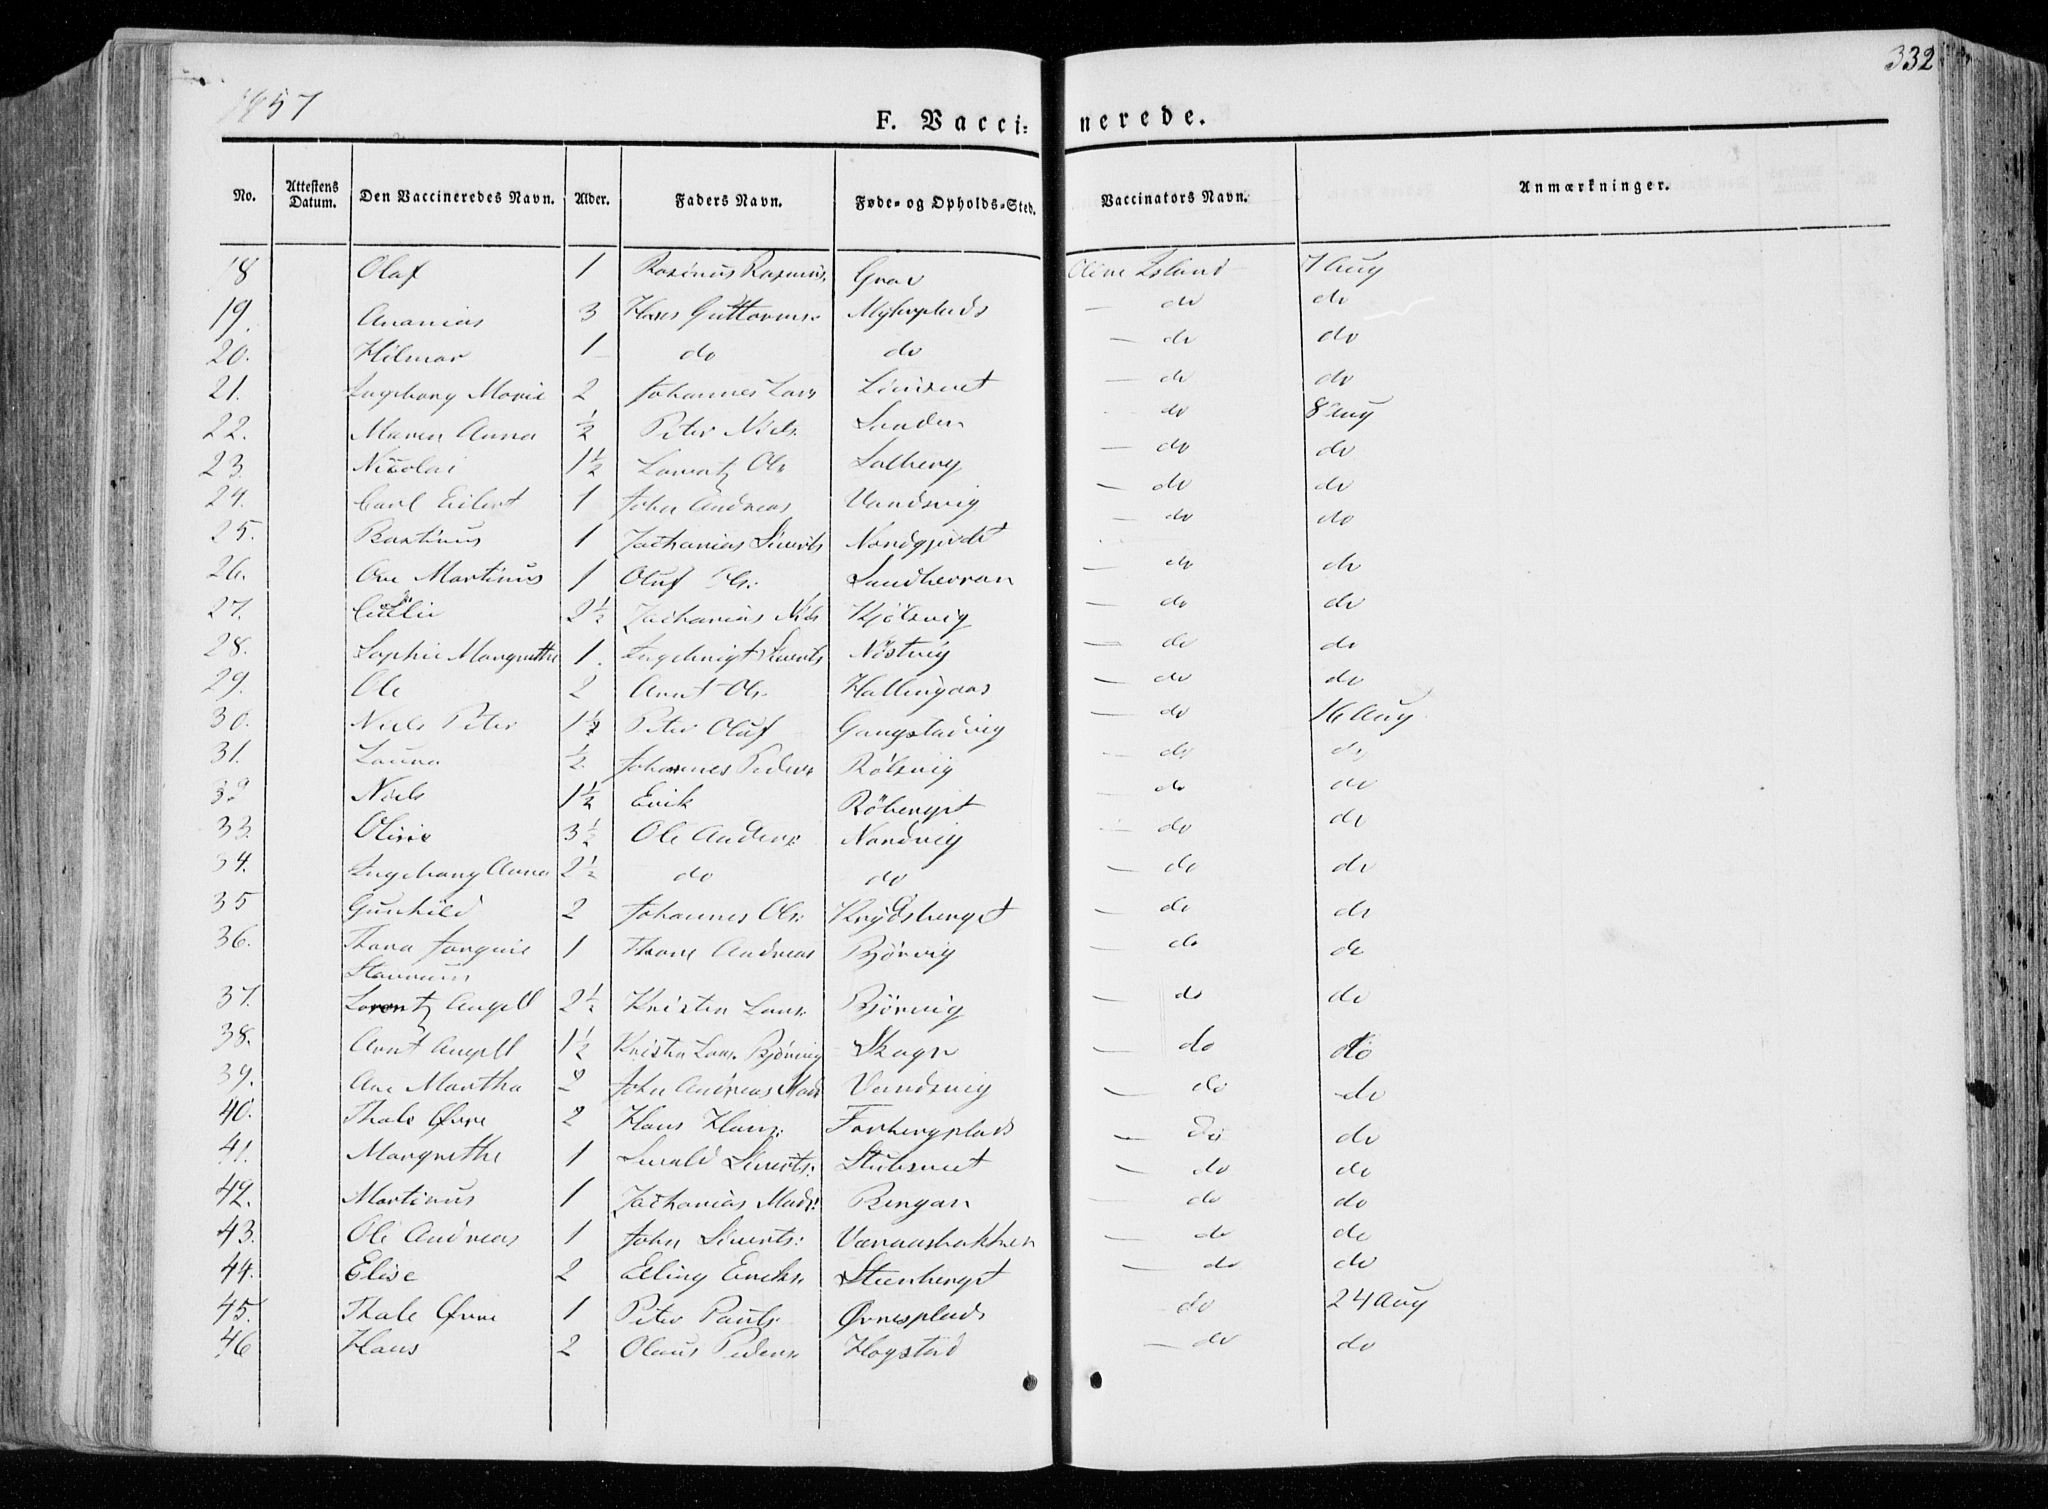 1857
332
F. Vaccinerede.
No. Attestens Datum. Den Vaccineredes Navn. Alder. Faders Navn. Føde- og Opholds-Sted. Vaccinators Navn. Anmærkninger.
18 Olaf 1 Rasmus Rasmus. Grav Oline Island 7 Aug
19. Ananias 3 Hans Guttorms. do do
20. Hilmar 1 do do do do
21. Ingeborg Marie 2 Johannes Lars do do
22. Maren Anna ½ Peter Niels. Sanden do 8 Aug
23. Nicolai 1½ Lorentz Ols Solberg do do
24. Carl Eilert 1 John Andreas Vandsvig do do
25. Bastinus 1 Zacharias Siverts Nordgjerdet do do
26. Ove Martinus 1 Oluf Ols. do do
27. 2½ Zacharias Niels Kjölsvig do do
28. Sophie Margrethe 1. Ingebrigt Siverts Nöstvig do do
29. Ole 2 Arnt Ols. Hallingaas do do
30. Niels Peter 1½ Peter Oluf Gangstadvig do 16 Aug
31. Laura ½ Johannes Peders Rölsvig do do
32 Niels 1½ Erik Röberget do do
33. Oline 3½ Ole Anders. Nordvig do do
34. Ingeborg Anna 2½ do do do do
35 Gunhild 2 Johannes Ols. Krydsberget do do
36. Thora 1 Thore Andreas Björvig do do
37. Lorentz Angell 2½ Kristen Lars. Björvig do do
38. Arnt Angell 1½ Kristen Lars. Björvig Skagn do do
39. Ane Martha 2 John Andreas Mads Vandsvig do do
40. Thale 2 Hans Hans. Forbergplads do do
41. Margrethe 1 Sivald Siverts. Stubsnest do do
42. Martinus 1 Zacharias Mads. Bengan do do
43. Ole Andreas 1 John Siverts. Værnaasbakken do do
44. Elise 2 Elling Eriks. Steenberget do do
45. Thale 1 Peter Pauls. Ørnesplads do 24 Aug
46 Hans 2 Olaus Peders. Hogstad do do